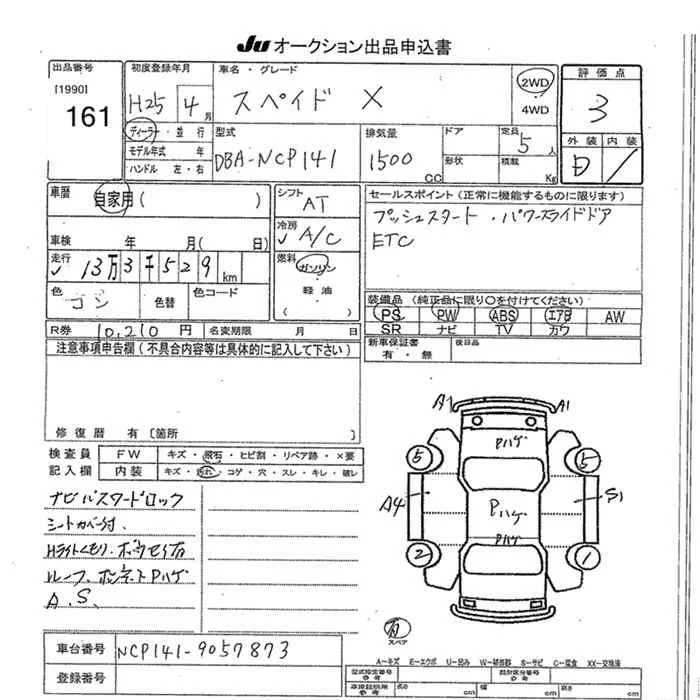 JU オークション出品申込書
出品番号
[1990]
161
初度登録年月
H25 4月
ディーラー・並行
モデル年式 年
ハンドル 左・右
車名・グレード
スペイド X
2WD
4WD
評価点
3
外装 内装
D
型式
DBA-NCP141
排気量
1500 CC
ドア
形状
定員
5人
積載
Kg
車暦
自家用 ( )
車検 年 月( 日)
走行
13万3千529km
色
コン
色替
色コード
シフト
AT
冷房
A/C
燃料
ガソリン
軽油
( )
セールスポイント (正常に機能するものに限ります)
プッシュスタート・パワースライドドア
ETC
装備品 (純正品に限り○を付けてください)
PS PW ABS エアB AW
SR ナビ TV カワ
R券 10,210円
名変期限 月 日
新車保証書
有・無
後日品
注意事項申告欄 (不具合内容等は具体的に記入して下さい)
修復歴 有 [箇所 ]
検査員
記入欄
FW キズ・飛石・ヒビ割・リペア跡・×要
内装 キズ・汚れ・コゲ・穴・スレ・キレ・破レ
ナビ バスタードロック
シートカバー付.
Hライトくもり.
ルーフ.ボンネットPハゲ
A.S.
A1 A1
Pハゲ
5 5
A4 Pハゲ S1
Pハゲ
2 1
有
スペア
車台番号 NCP141-9057873
登録番号
A-キズ E-エクボ U-凹み W-補修跡 S-サビ C-腐食 XX-交換済
型式指定番号
参考
類別区分番号
参考
車庫証明用
参考
長さ cm 幅 cm 高さ cm